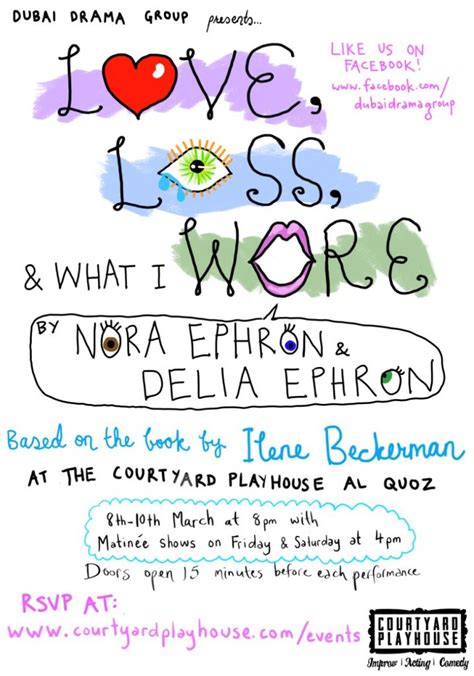 DUBAI DRAMA GROUP presents...
LIKE US ON
FACEBOOK!
www.facebook.com/
dubaidramagroup
LOVE,
LOSS,
& WHAT I WORE
BY NORA EPHRON &
DELIA EPHRON
Based on the book by Ilene Beckerman
AT THE COURTYARD PLAYHOUSE AL QUOZ
8th-10th March at 8pm with
Matinée shows on Friday & Saturday at 4pm
Doors open 15 minutes before each performance
RSVP AT:
www.courtyardplayhouse.com/events
COURTYARD
PLAYHOUSE
Improv | Acting | Comedy